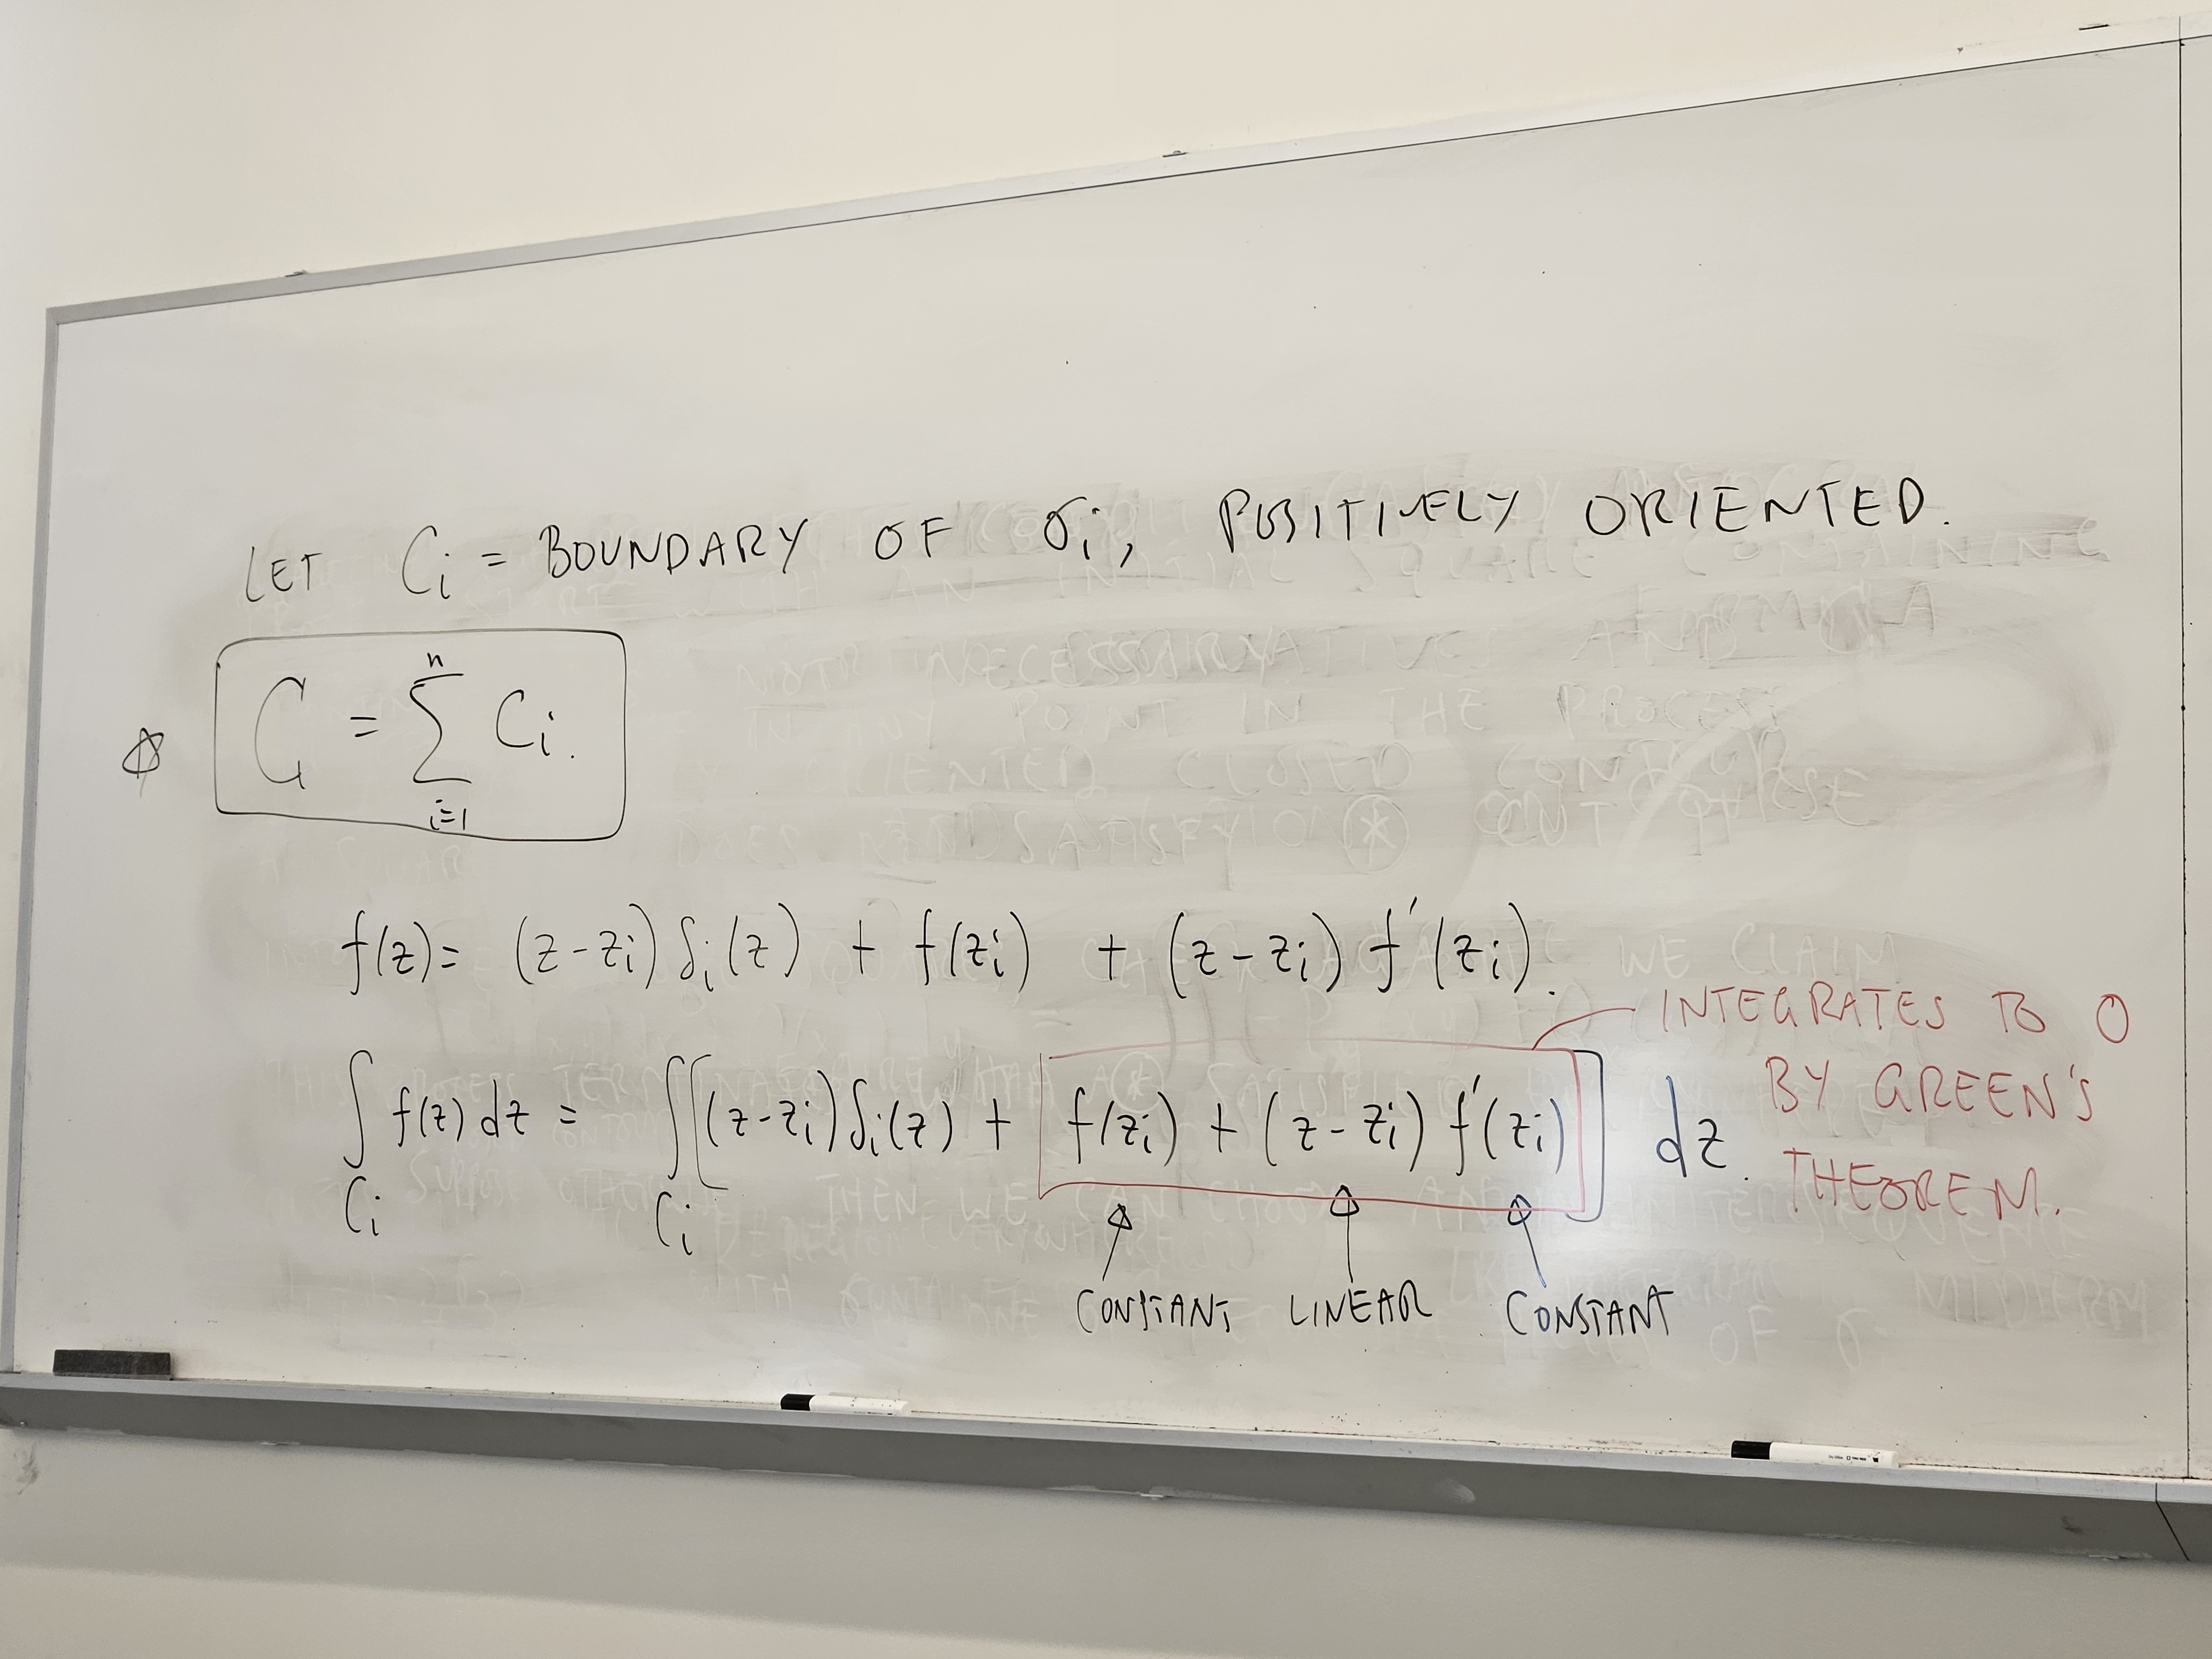 LET Cᵢ = BOUNDARY OF σᵢ, POSITIVELY ORIENTED.
C = ∑ᵢ₌₁ⁿ Cᵢ.
f(z) = (z-zᵢ) δᵢ(z) + f(zᵢ) + (z-zᵢ) f'(zᵢ).
∫_Cᵢ f(z) dz = ∫_Cᵢ [(z-zᵢ) δᵢ(z) + f(zᵢ) + (z-zᵢ) f'(zᵢ)] dz.
INTEGRATES TO 0
BY GREEN'S
THEOREM.
CONSTANT LINEAR CONSTANT